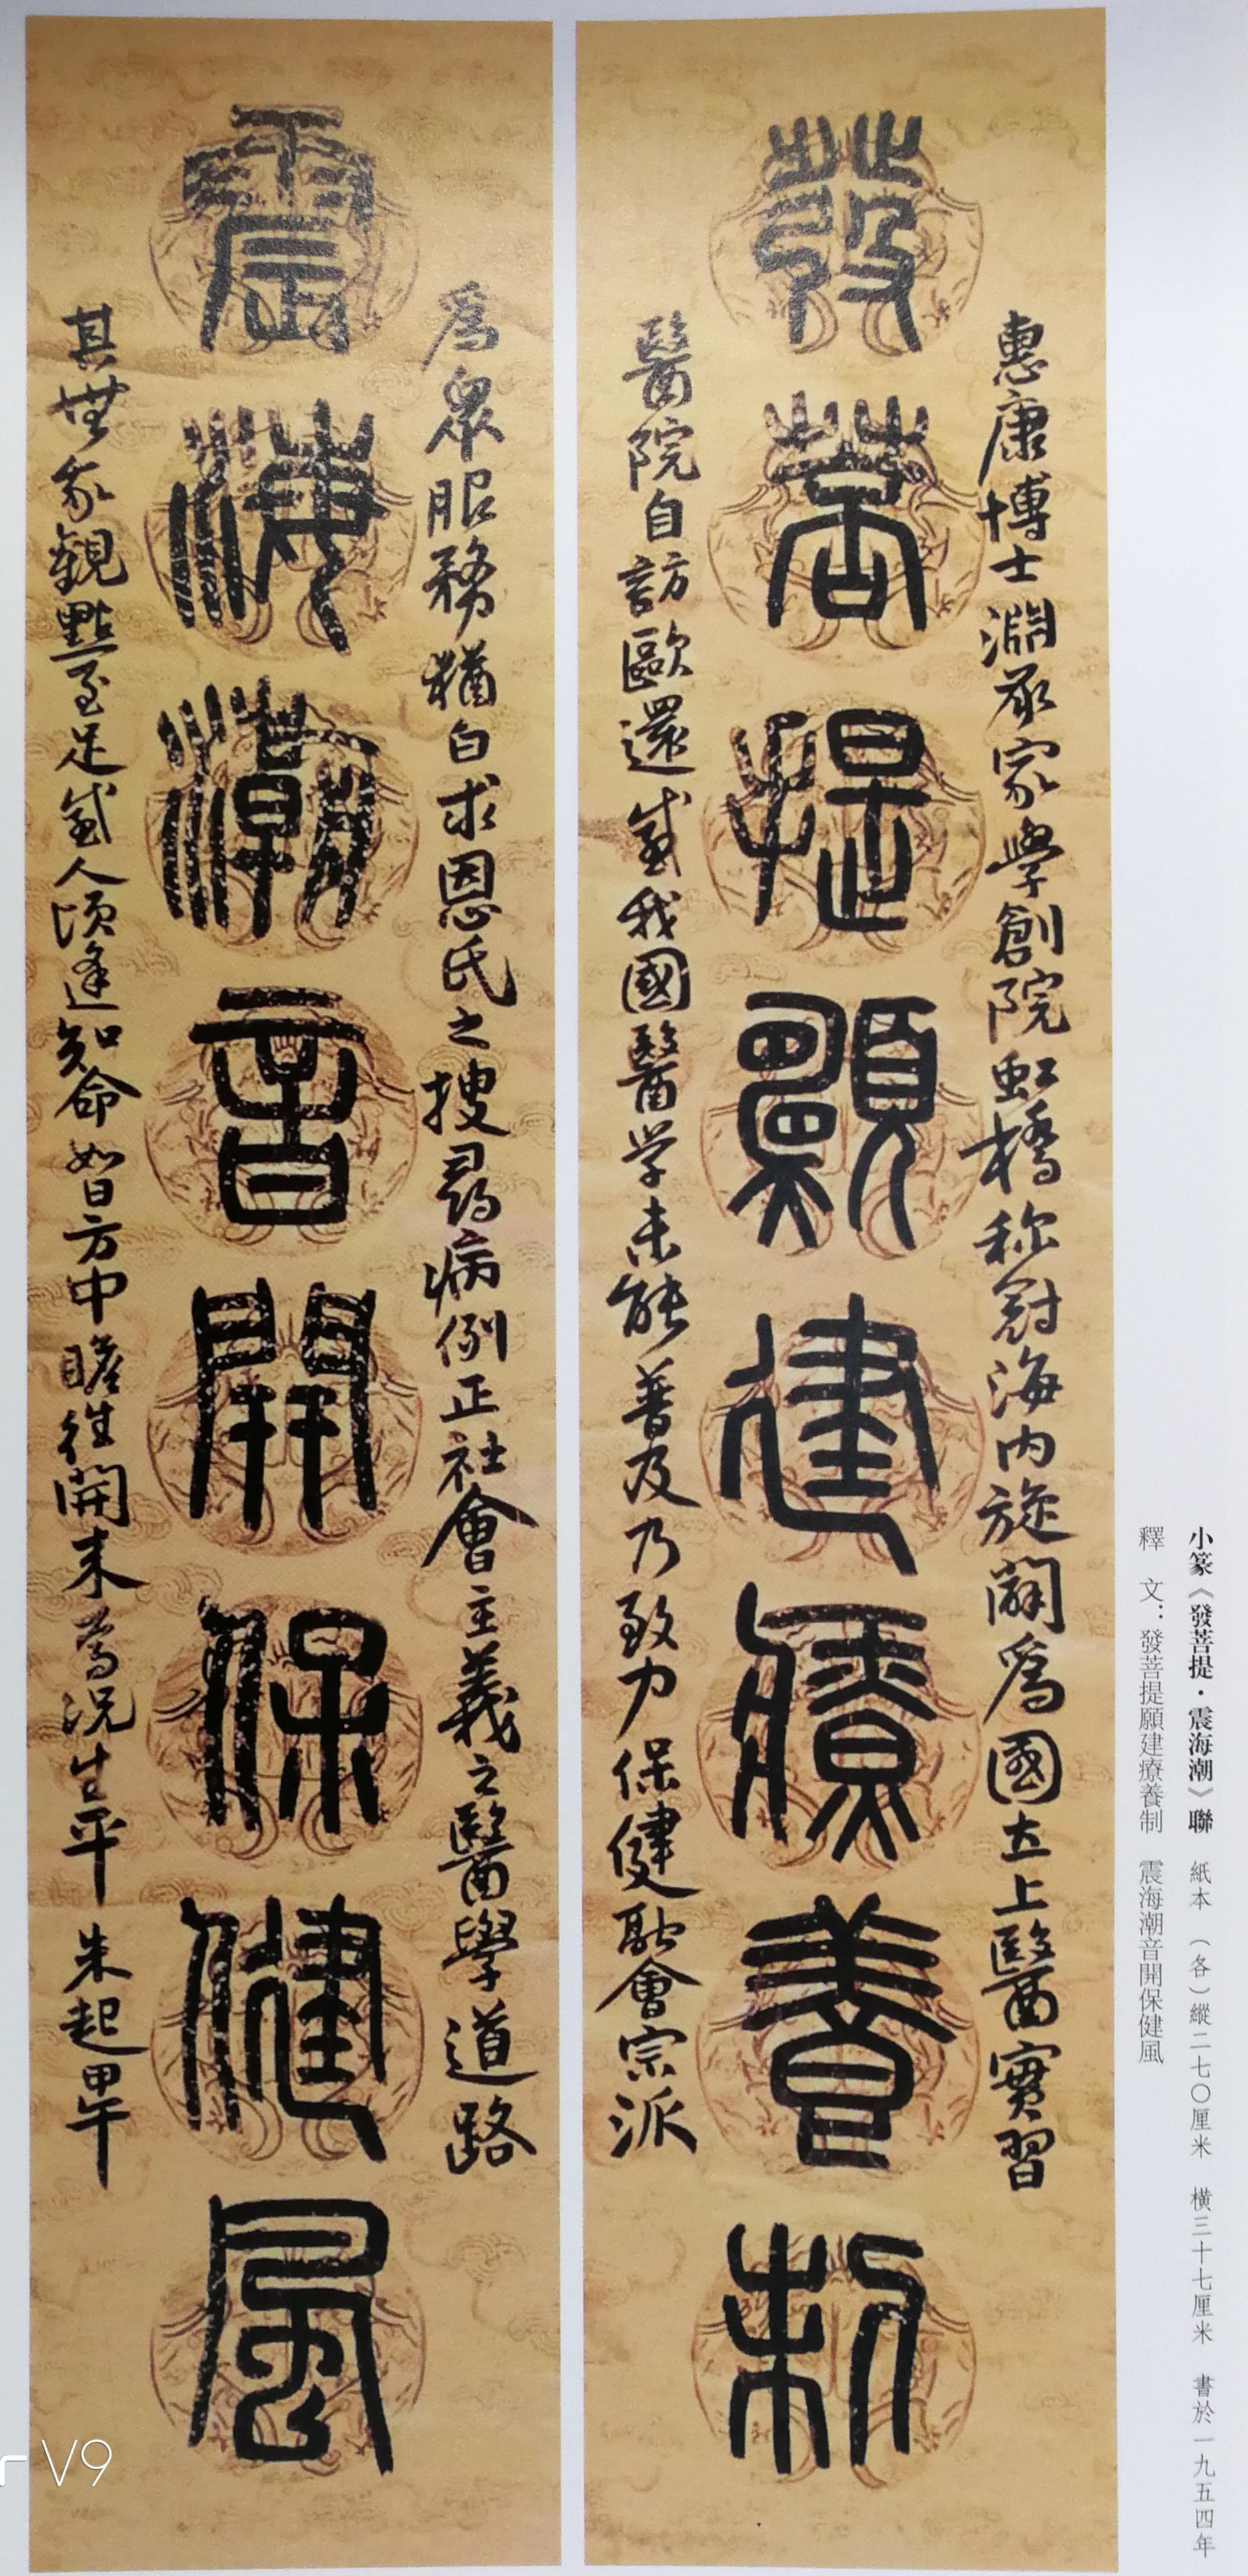 小篆《發菩提·震海潮》聯 紙本 （各）縱二七〇厘米 橫三十七厘米 書於一九五四年
釋 文：發菩提願建療養制 震海潮音開保健風
惠康博士淵承家學創院虹橋称冠海內旋闢爲國立上醫實習
發菩提願建療養制
醫院自訪歐還感我國醫学未能普及乃致力保健融會宗派
爲眾服務猶白求恩氏之搜尋病例正社會主義之醫學道路
震海潮音開保健風
其無我觀點至足感人頃逢知命如日方中瞻往開来為况生平 朱起甲午
V9